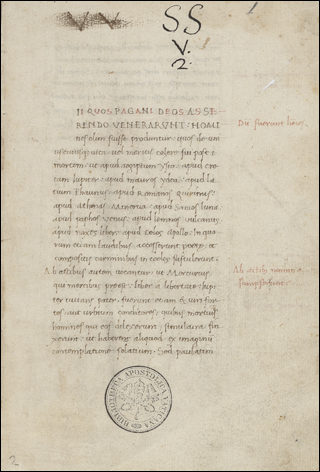 SS
V.
2.
II QUOS PAGANI DEOS ASSE
RENDO VENERARUNT · HOMI
nes olim fuisse produntur · et pro
uniuscuiusque vita vel meritis coli
mortem · ut apud aegiptum Ysis · apud cre
tam Iupiter · apud mauros · apud la
tium Phaunus · apud Romanos Quirinus ·
apud Athenas Minerva · apud Samos Iuno
apud paphos Venus · apud lemnos vulcanus
apud naxos liber · apud delos apollo · In quo
rum etiam laudibus accesserunt poetae · et
compositis carminibus in coelos sustulerunt ·
Ab actibus autem vocantur · ut Mercurius
qui mercibus praeest · liber a libertate · Iup
piter iuvans pater · fuerunt etiam et viri for
tes · aut urbium conditores · quibus mortuis
homines qui eos dilexerunt · simulacra fin
xerunt · ut haberent aliquod ex imaginum
contemplatione solatium · Sed paulatim
Dii fuerunt homines
Ab actibus nomina
sumpserunt
BIBLIOTECA APOSTOLICA VATICANA
2